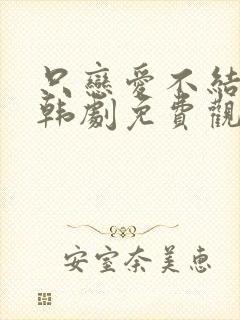 只戀愛不結
韩劇免費觀
安室奈美惠